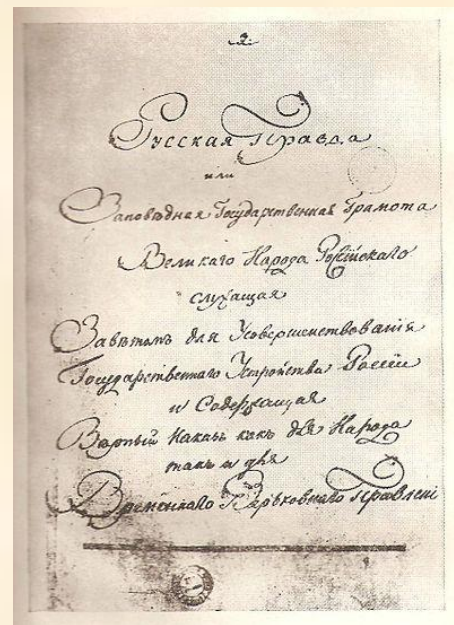 Русская Правда
или
Заповѣдная Государственная Грамота
Великаго Народа Россійскаго
служащая
Завѣтомъ для Усовершенствованія
Государственнаго Устройства Россіи
и Содержащая
Вѣрный Наказъ какъ для Народа
такъ и для
Временнаго Верьховнаго Правлені